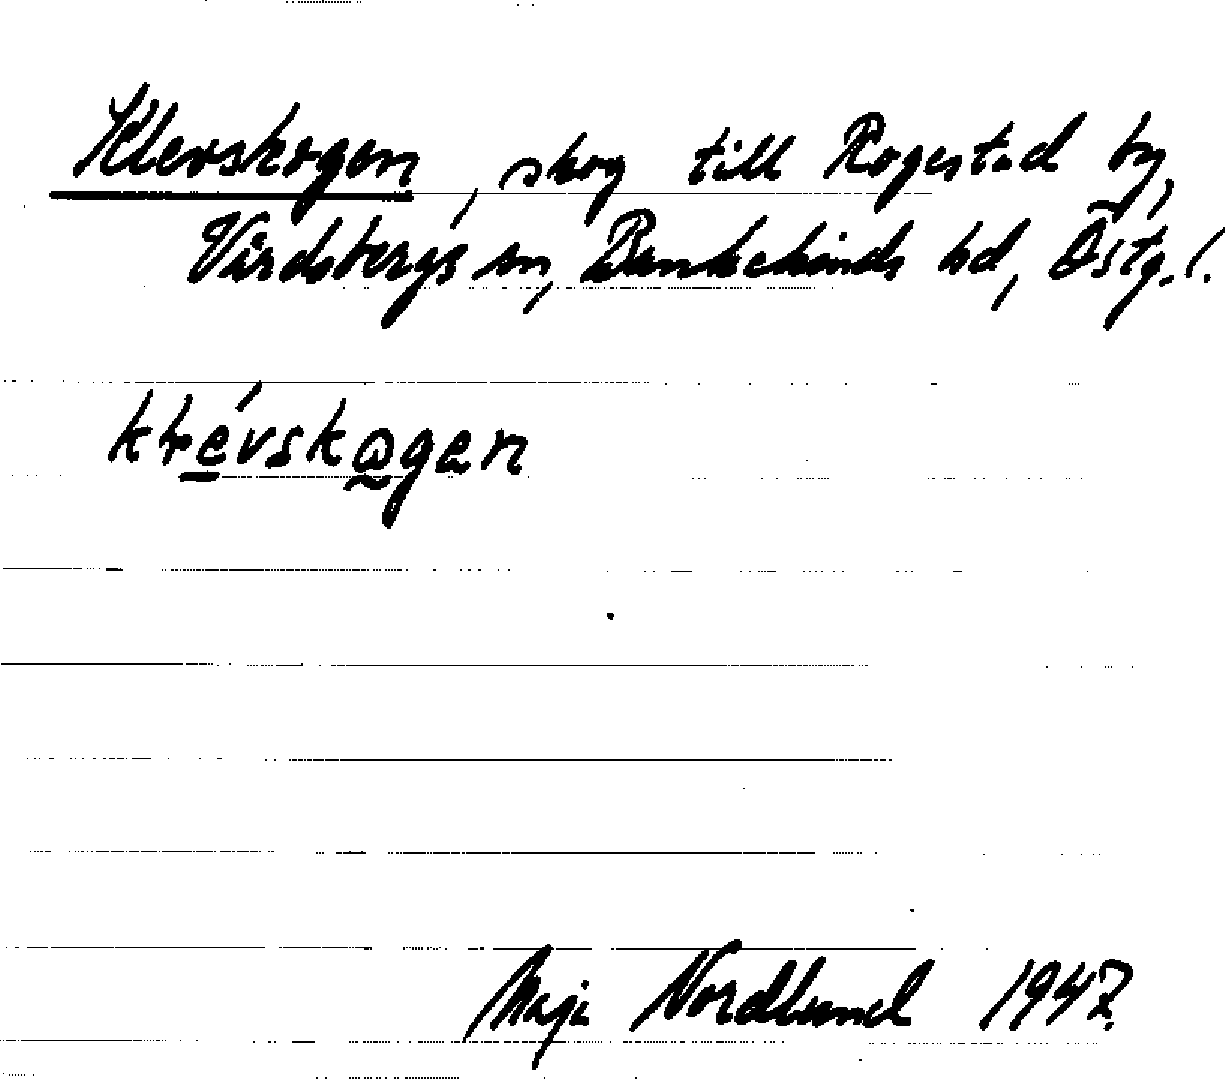 Klevskogen, skog till Rogestad by,
Vårdsbergs sn, Bankekinds hd, Östg. l.
klévskogen
Maja Nordlund 1947.